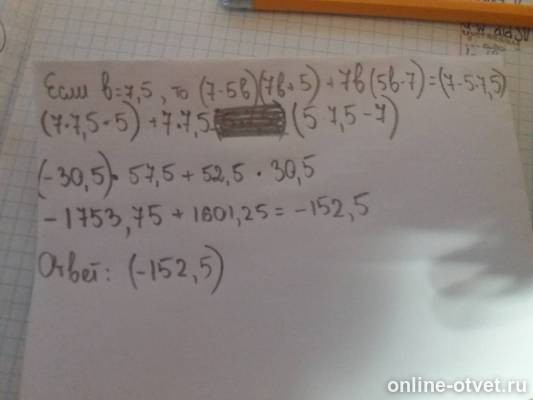 Если b=7,5, то (7-5b)(7b+5)+7b(5b-7)=(7-5·7,5)
(7·7,5+5)+7·7,5 (5·7,5-7)
(-30,5)·57,5+52,5·30,5
-1753,75+1601,25=-152,5
Ответ: (-152,5)
online-otvet.ru